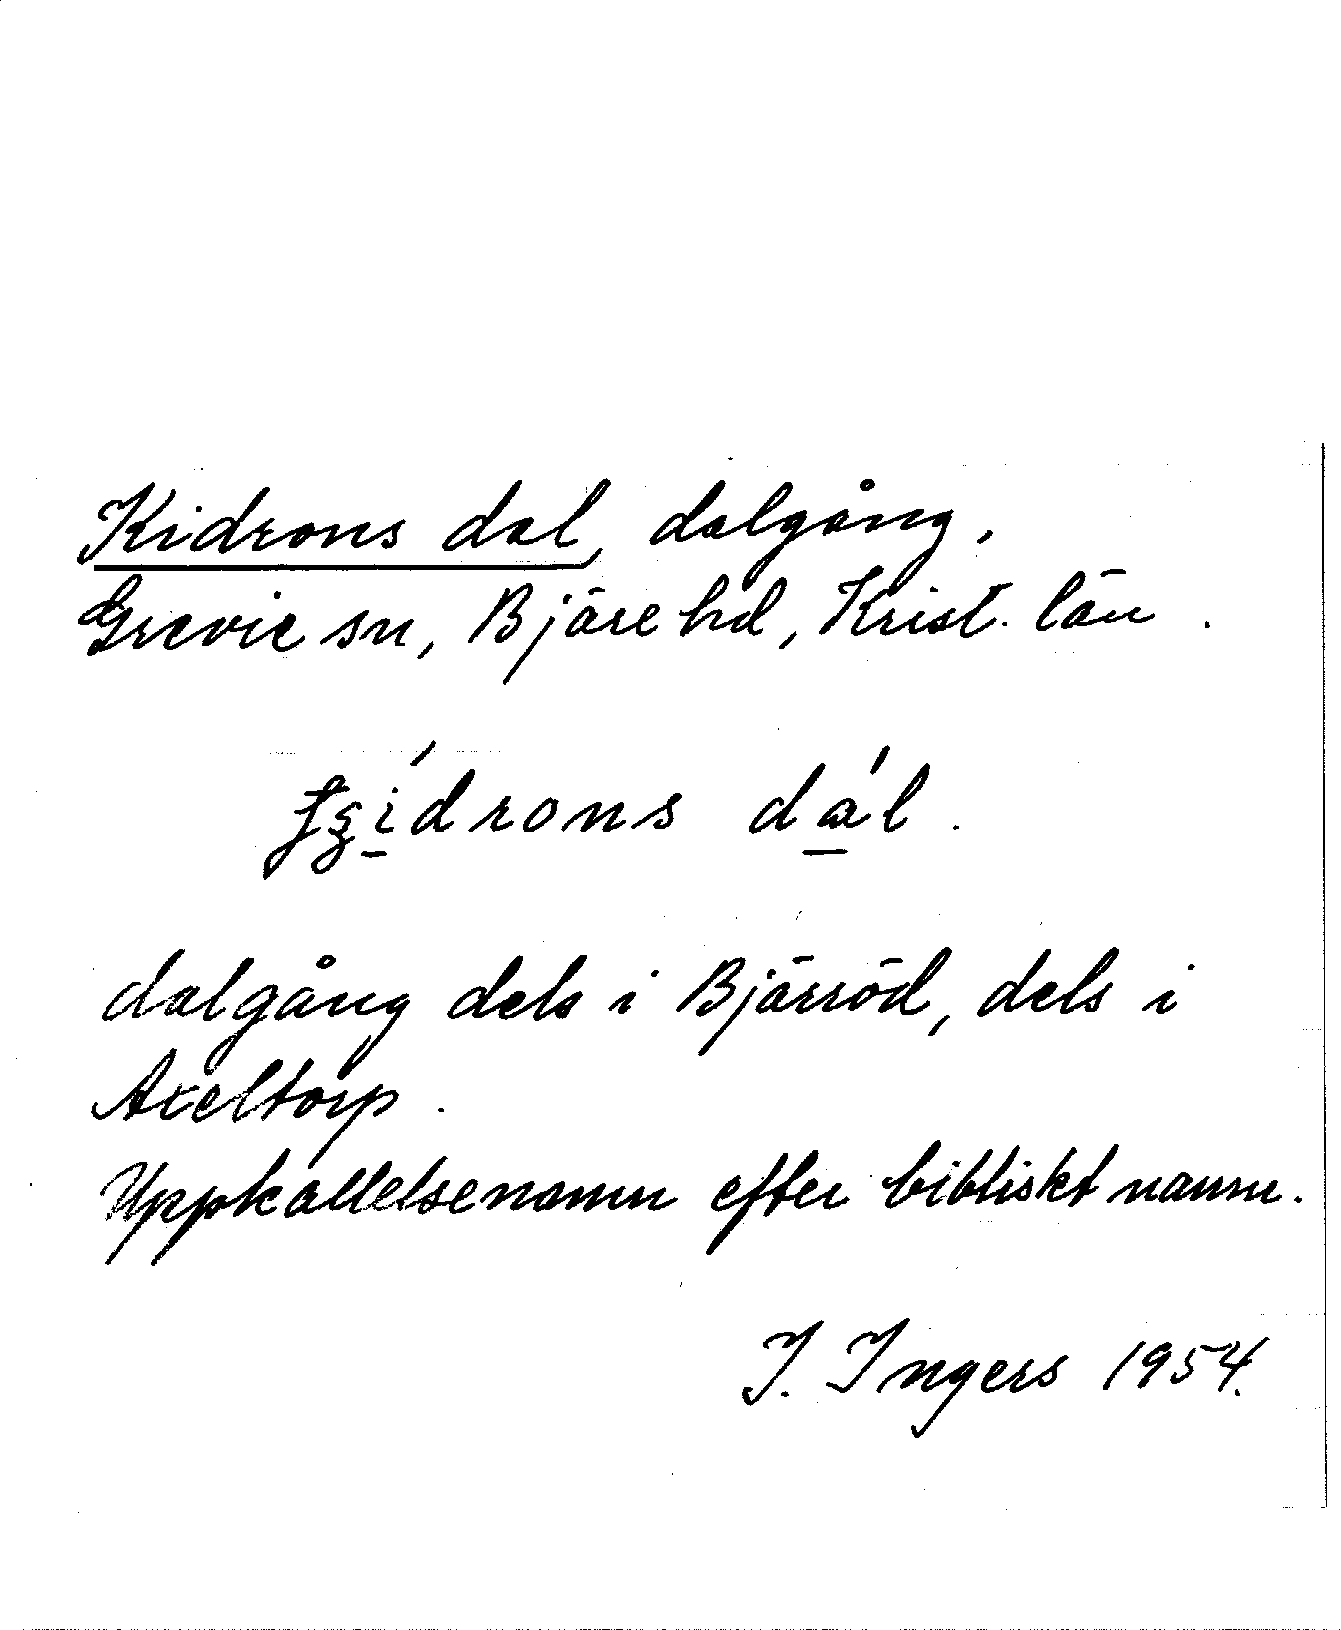 Kidrons dal, dalgång.
Grevie sn, Bjäre hd, Krist. län.
drons dál.
dalgång dels i Bjärröd, dels i
Axeltorp.
Uppkallelsenamn efter bibliskt namn.
I. Ingers 1954.